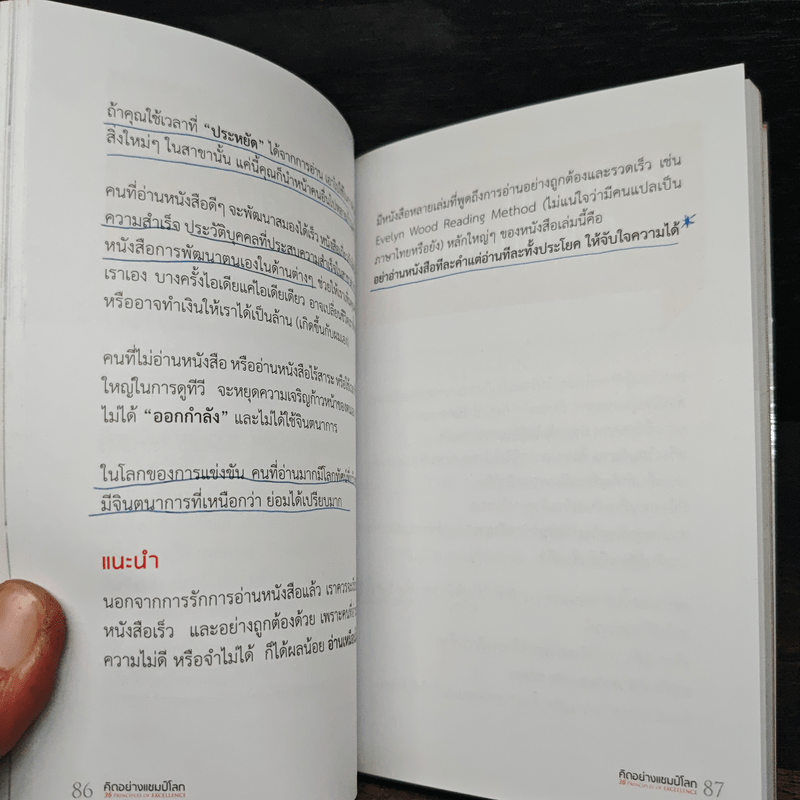 ถ้าคุณใช้เวลาที่ “ประหยัด” ได้จากการอ่าน
สิ่งใหม่ๆ ในสาขานั้น แค่นี้คุณก็นำหน้าคนอื่น
คนที่อ่านหนังสือดีๆ จะพัฒนาสมองได้เร็ว
ความสำเร็จ ประวัติบุคคลที่ประสบความสำเร็จ
หนังสือการพัฒนาตนเองในด้านต่างๆ ช่วยให้เรา
เราเอง บางครั้งไอเดียแค่ไอเดียเดียว อาจเปลี่ยนชีวิต
หรืออาจทำเงินให้เราได้เป็นล้าน (เกิดขึ้นกับผมเอง)
คนที่ไม่อ่านหนังสือ หรืออ่านหนังสือไร้สาระ
ใหญ่ในการดูทีวี จะหยุดความเจริญก้าวหน้าของ
ไม่ได้ “ออกกำลัง” และไม่ได้ใช้จินตนาการ
ในโลกของการแข่งขัน คนที่อ่านมากมีโลกทัศน์
มีจินตนาการที่เหนือกว่า ย่อมได้เปรียบมาก
แนะนำ
นอกจากการรักการอ่านหนังสือแล้ว เราควรจะ
หนังสือเร็ว และอย่างถูกต้องด้วย เพราะคนที่
ความไม่ดี หรือจำไม่ได้ ก็ได้ผลน้อย
86 คิดอย่างแชมป์โลก
28 PRINCIPLES OF EXCELLENCE
มีหนังสือหลายเล่มที่พูดถึงการอ่านอย่างถูกต้องและรวดเร็ว เช่น
Evelyn Wood Reading Method (ไม่แน่ใจว่ามีคนแปลเป็น
ภาษาไทยหรือยัง) หลักใหญ่ๆ ของหนังสือเล่มนี้คือ
อย่าอ่านหนังสือทีละคำแต่อ่านทีละทั้งประโยค ให้จับใจความได้
คิดอย่างแชมป์โลก 87
28 PRINCIPLES OF EXCELLENCE